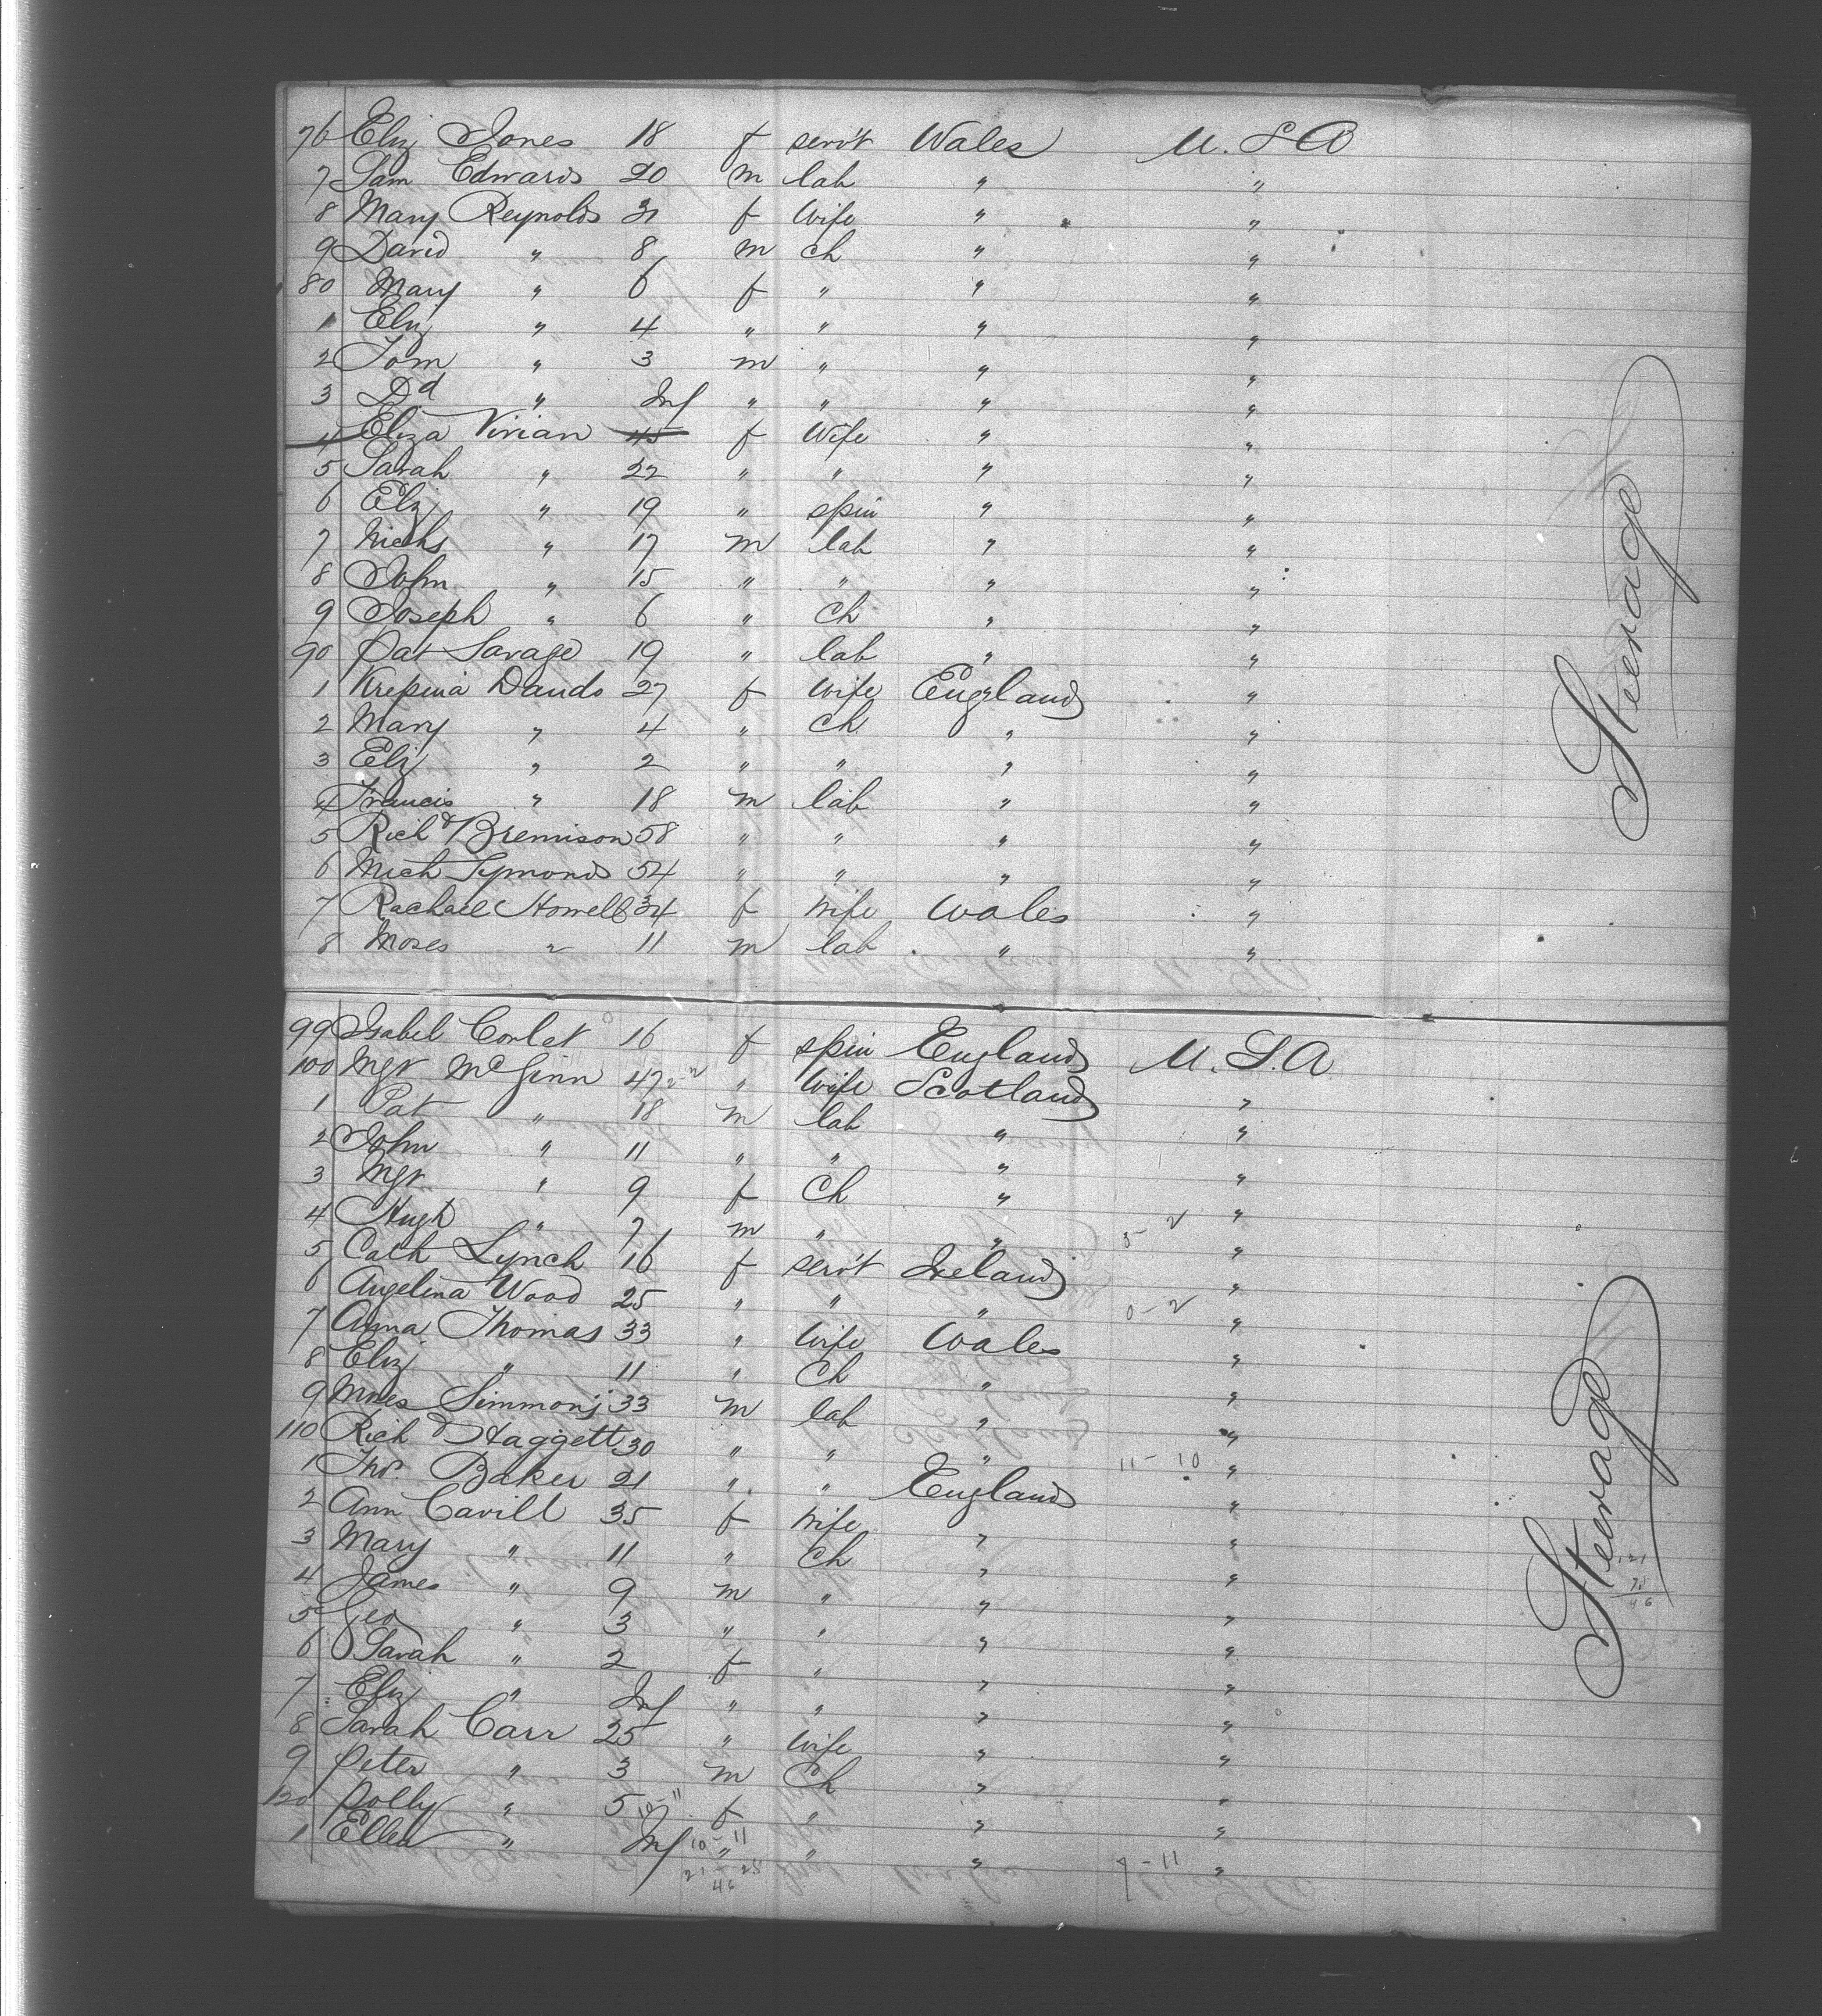 76 Eliz Jones 18 f servt Wales U.S.A
7 Sam Edwards 20 m lab " "
8 Mary Reynolds 31 f wife " "
9 David " 8 m ch " "
80 Mary " 6 f " " "
1 Eliz " 4 " " " "
2 Tom " 3 m " " "
3 Dd " Inf " " " "
4 Eliza Vivian 45 f Wife " "
5 Sarah " 22 " " " "
6 Eliz " 19 " spin " "
7 Nichs " 17 m lab " "
8 John " 15 " " " "
9 Joseph " 6 " Ch " "
90 Pat Savage 19 " lab " "
1 Dando 27 f wife England "
2 Mary " 4 " Ch " "
3 Eliz " 2 " " " "
4 Francis " 18 m lab " "
5 Richd Brennison 58 " " " "
6 Mich Symonds 54 " " " "
7 Rachael Howells 34 f wife Wales "
8 Moses " 11 m lab " "
99 Isabel Corlet 16 f spin England U.S.A
100 Mgr McGinn 47 " Wife Scotland "
1 Pat " 18 m lab " "
2 John " 11 " " " "
3 Mgr " 9 f Ch " "
4 Hugh " 7 m " " "
5 Cath Lynch 16 f servt Ireland "
6 Angelina Wood 25 " " " "
7 Anna Thomas 33 " Wife Wales "
8 Eliz " 11 " Ch " "
9 Moses Simmons 33 m lab " "
110 Richd Haggett 30 " " " 11-10 "
1 Thos. Baker 21 " " England "
2 Ann Cavill 35 f wife " "
3 Mary " 11 " Ch " "
4 James " 9 m " " "
5 Geo " 3 " " " "
6 Sarah " 2 f " " "
7 Eliz " Inf " " " "
8 Sarah Carr 25 " Wife " "
9 Peter " 3 m Ch " "
120 Polly " 5 10-11 f " " "
1 Ellen " Inf 10-11 " " " 7-11 "
21-25
46
Steerage
Steerage